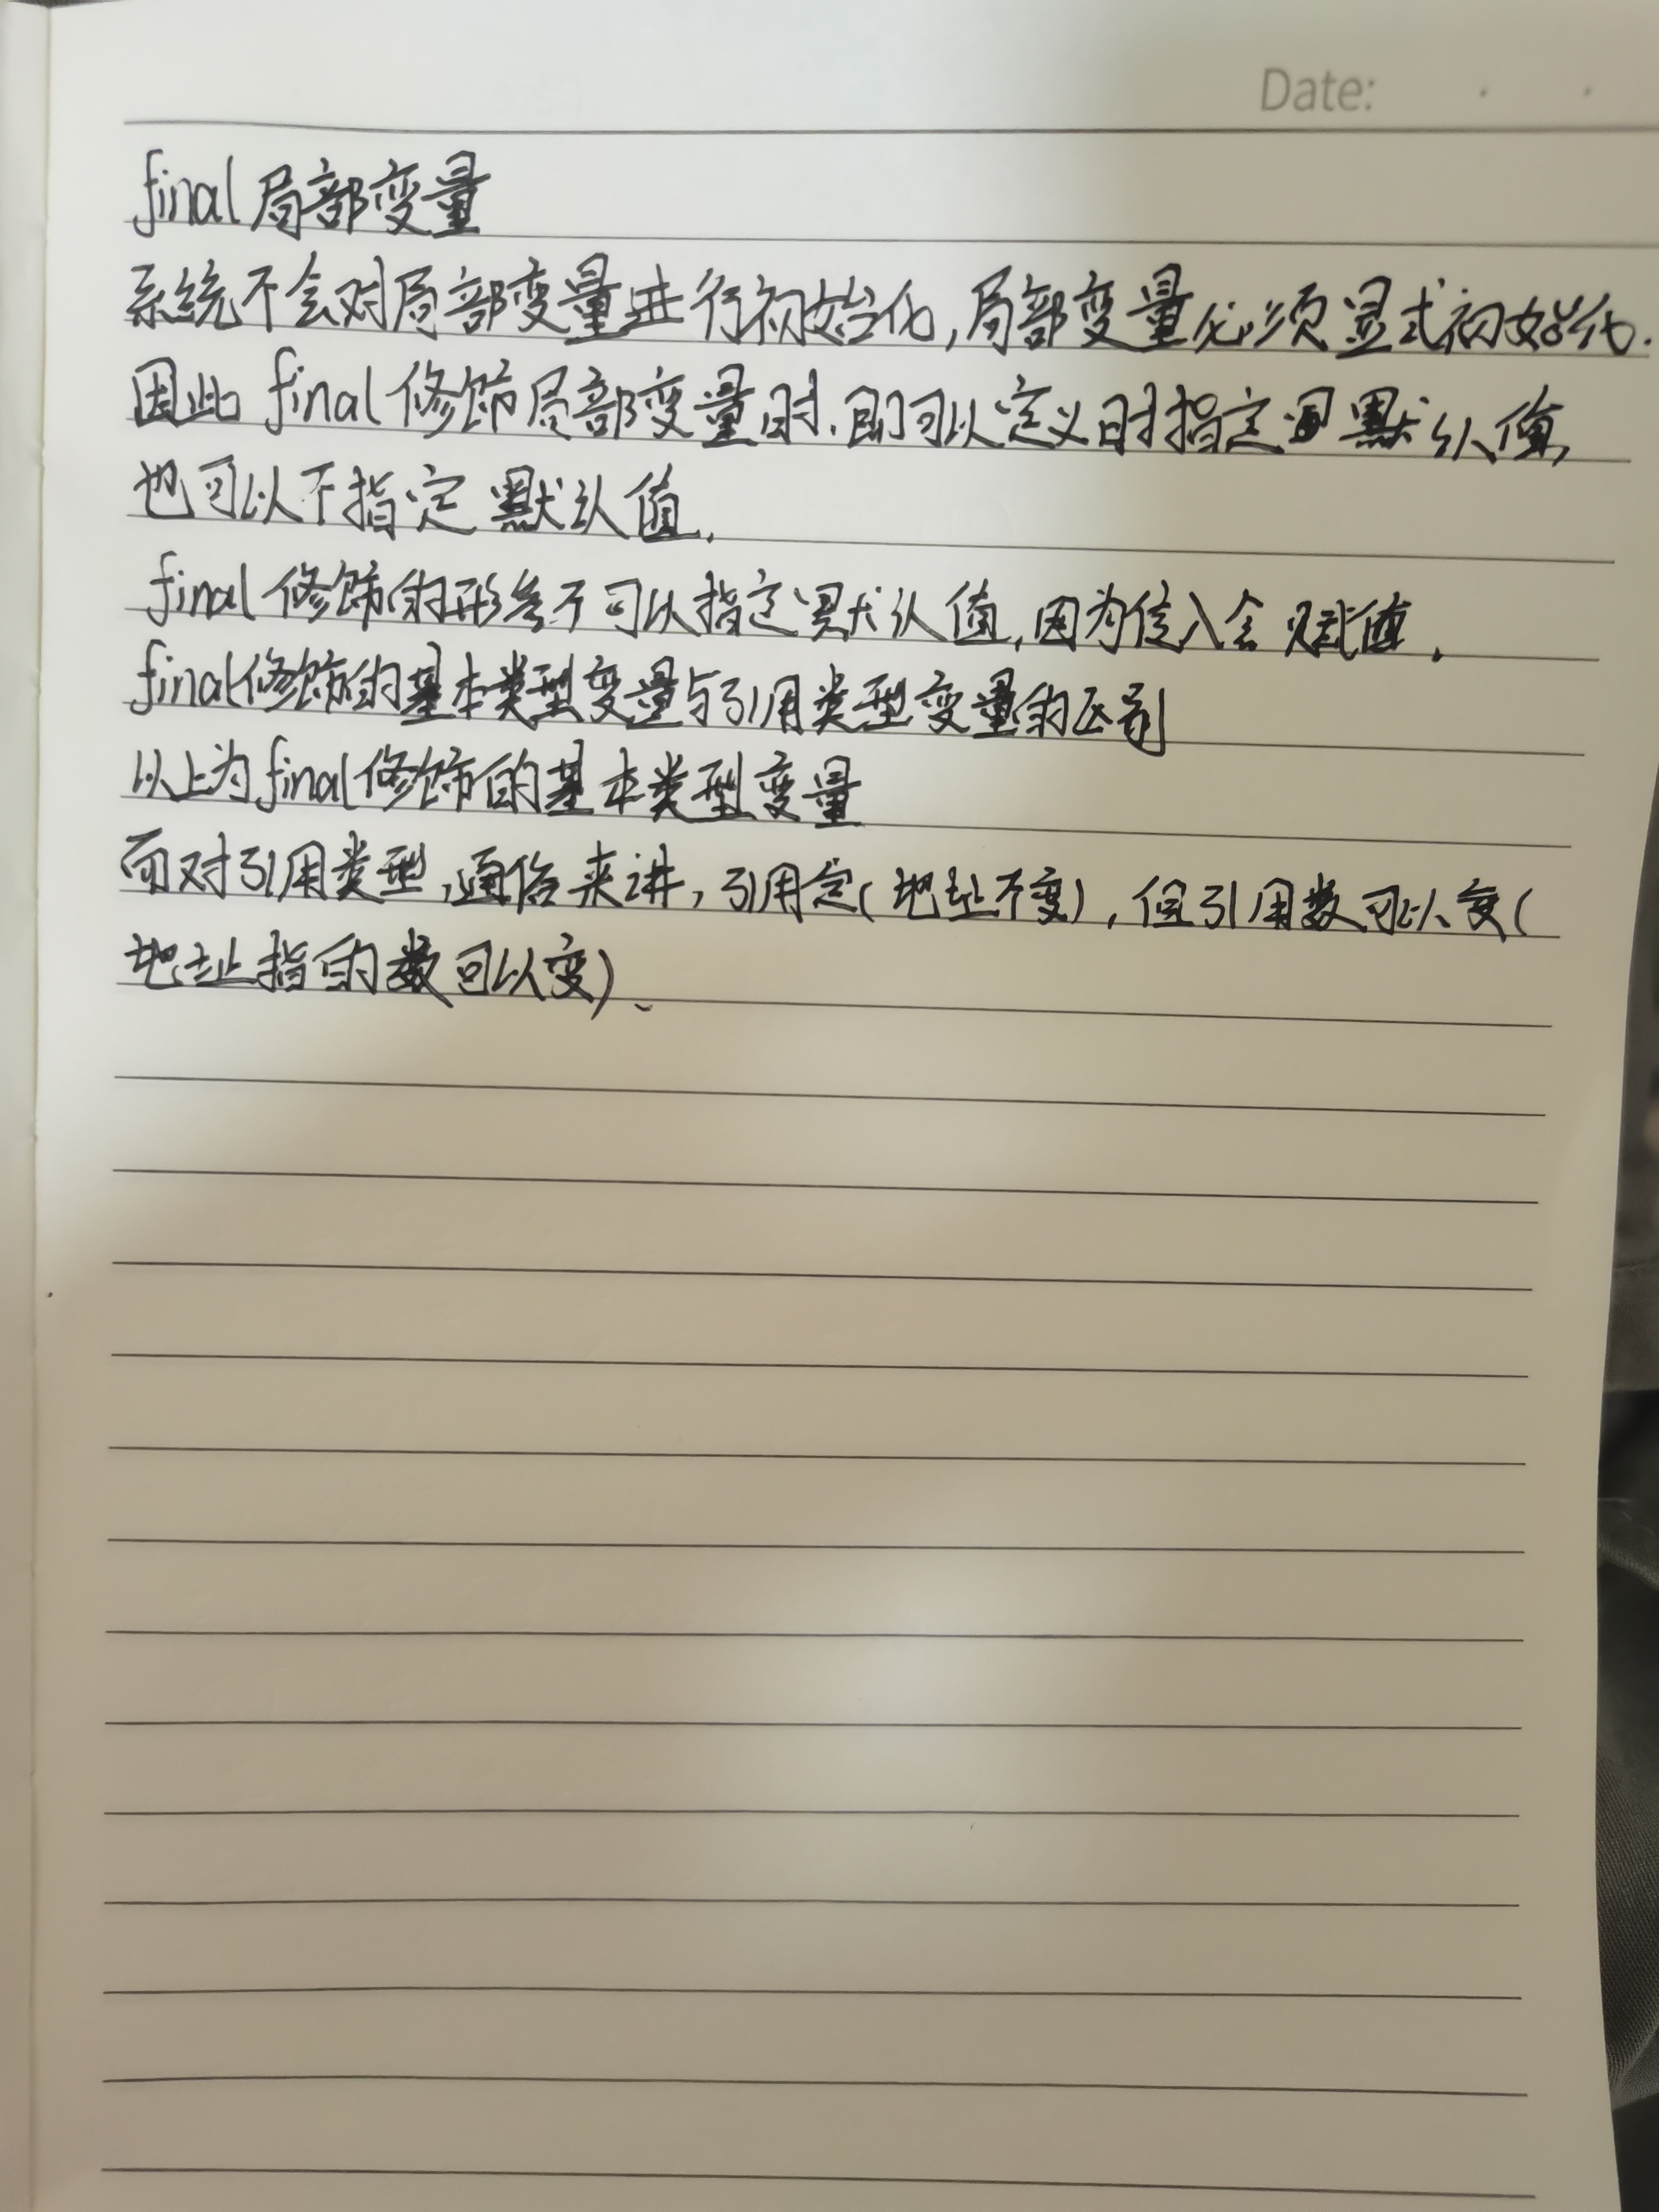 Date:
final局部变量
系统不会对局部变量进行初始化,局部变量必须显式初始化.
因此final修饰局部变量时.即可以定义时指定默认值,
也可以不指定默认值.
final修饰的形参不可以指定默认值,因为传入会赋值.
final修饰的基本类型变量与引用类型变量的区别
以上为final修饰的基本类型变量
而对引用类型,通俗来讲,引用定(地址不变),但引用数可以变(
地址指的数可以变)、